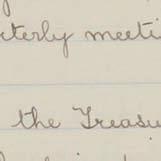 rterly meeti
the Treasu